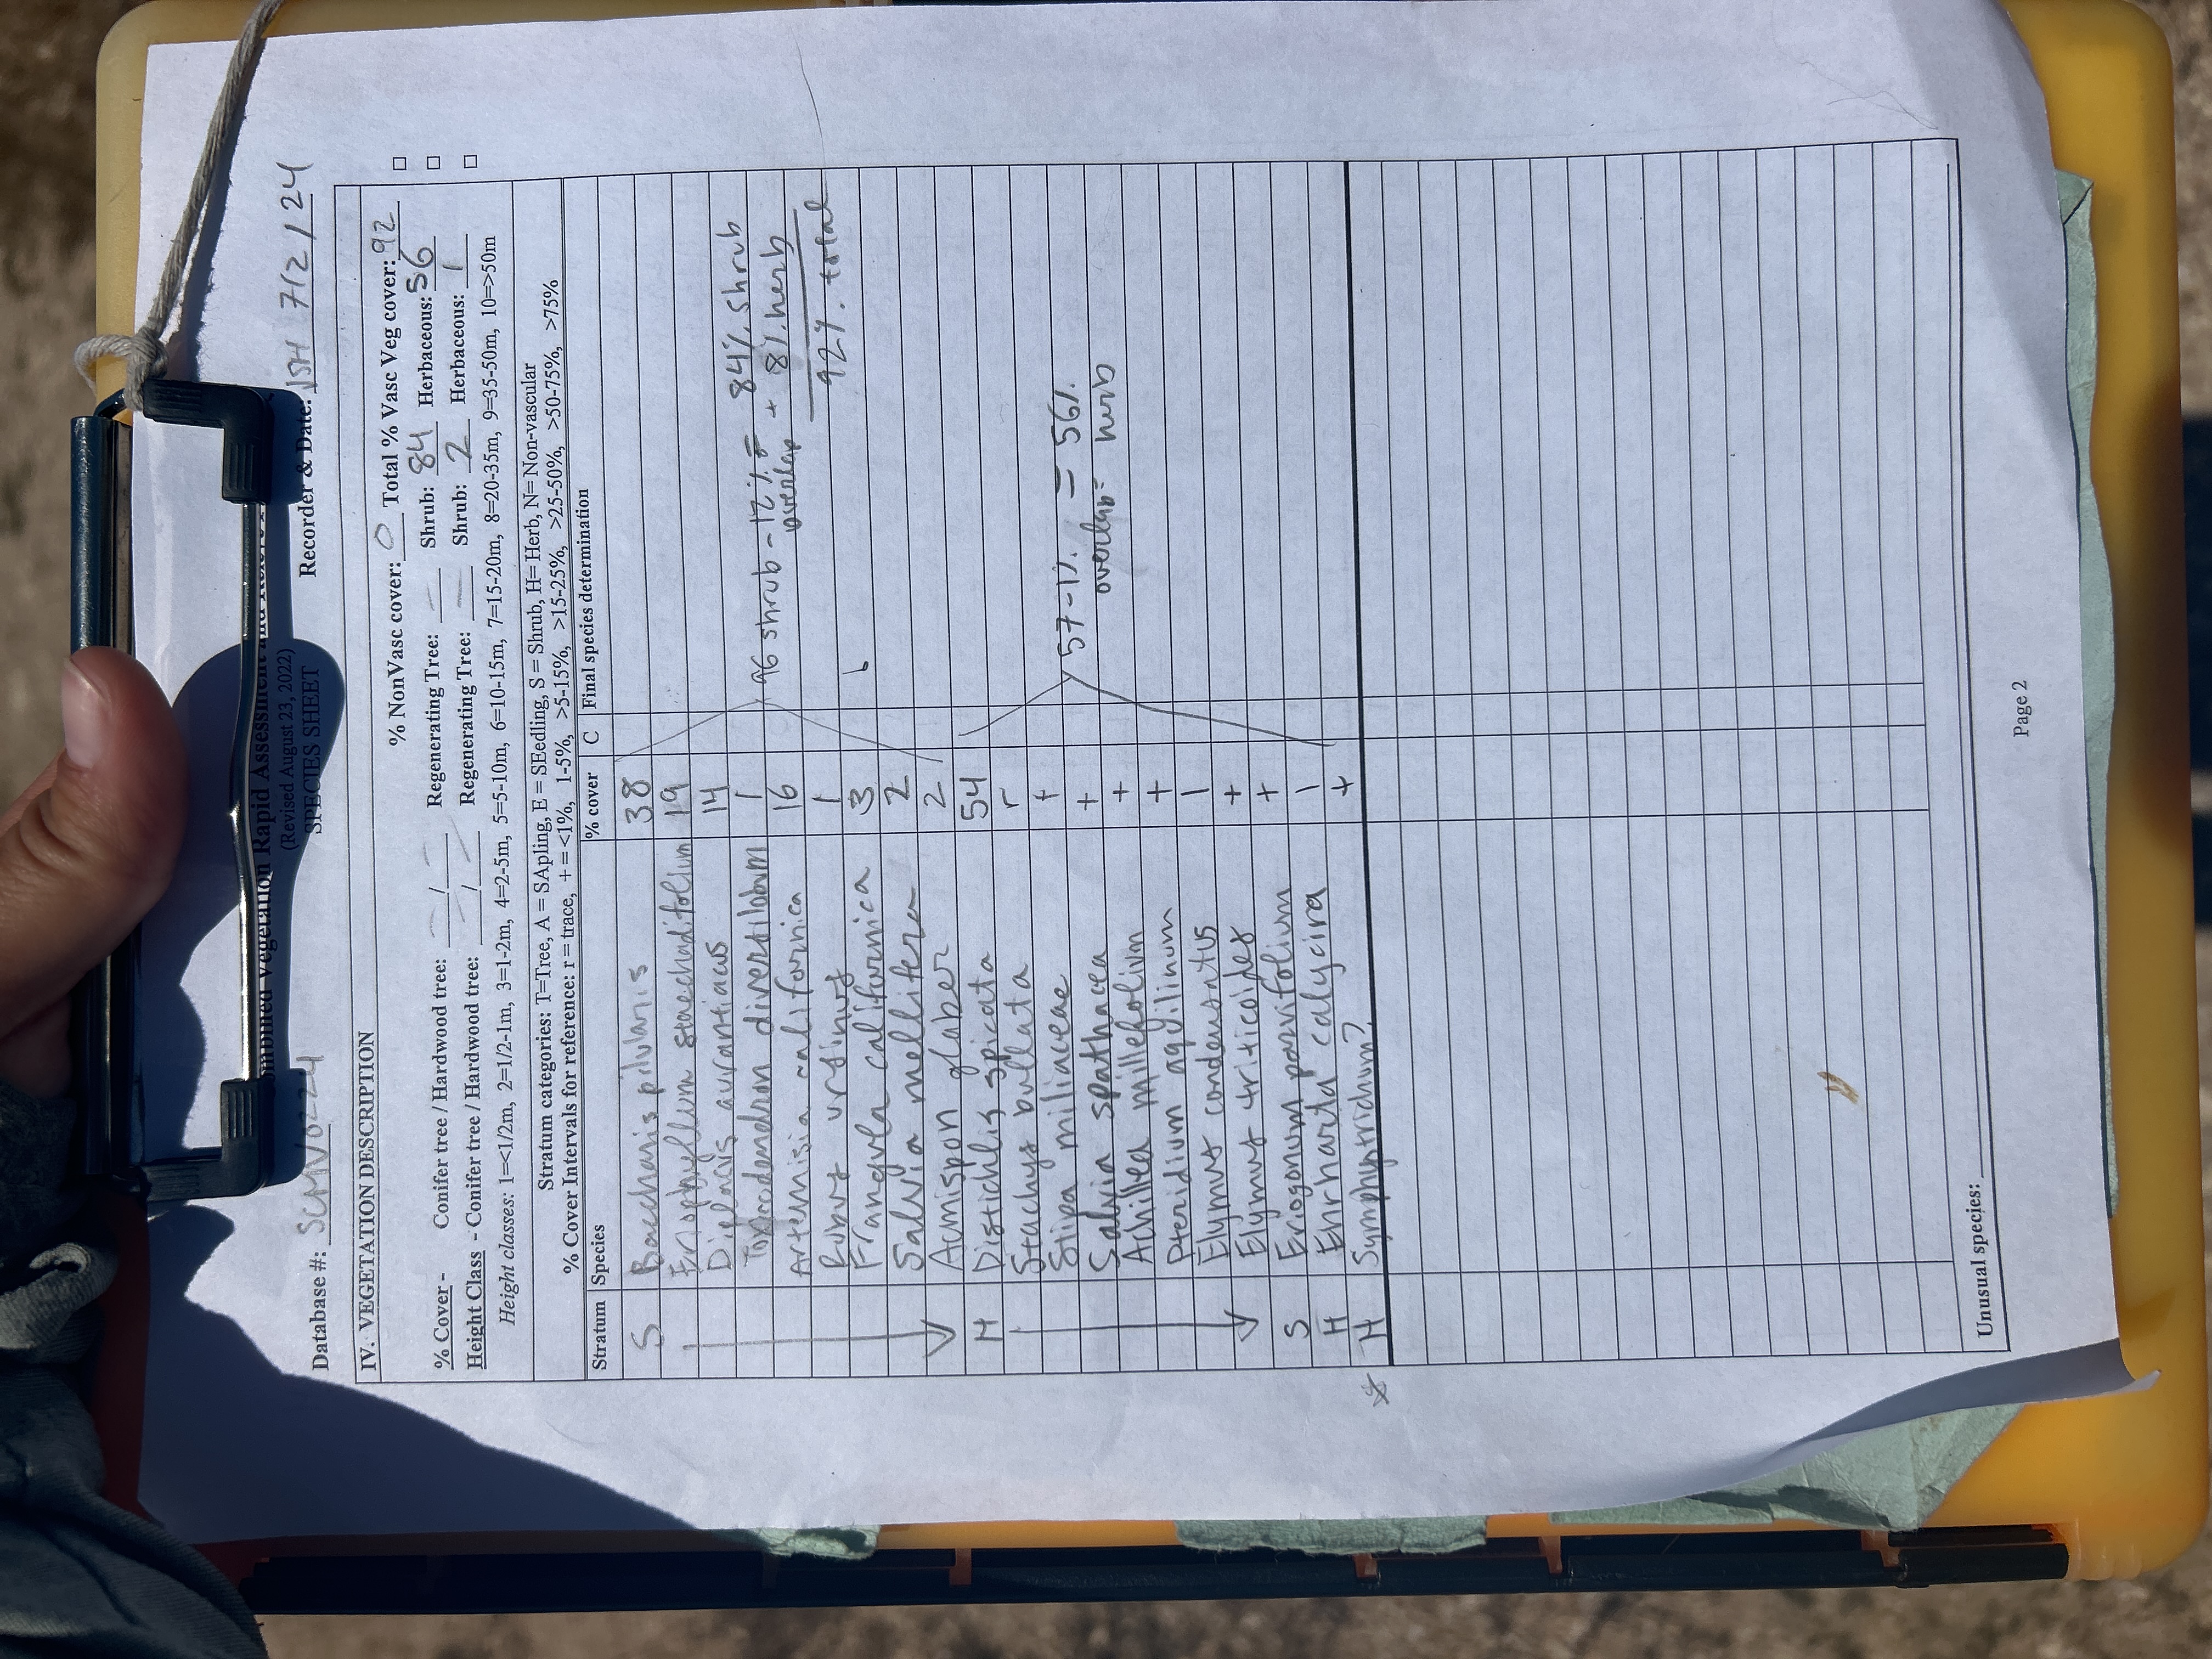 Combined Vegetation Rapid Assessment and Relevé
(Revised August 23, 2022)
SPECIES SHEET
Database #: SCMV0224 Recorder & Date: JSH 7/2/24
IV. VEGETATION DESCRIPTION
% NonVasc cover: 0 Total % Vasc Veg cover: 92
% Cover - Conifer tree / Hardwood tree: — / — Regenerating Tree: — Shrub: 84 Herbaceous: 56
Height Class - Conifer tree / Hardwood tree: — / — Regenerating Tree: — Shrub: 2 Herbaceous: 1
Height classes: 1=<1/2m, 2=1/2-1m, 3=1-2m, 4=2-5m, 5=5-10m, 6=10-15m, 7=15-20m, 8=20-35m, 9=35-50m, 10=>50m
Stratum categories: T=Tree, A = SApling, E = SEedling, S = Shrub, H= Herb, N= Non-vascular
% Cover Intervals for reference: r = trace, + = <1%, 1-5%, >5-15%, >15-25%, >25-50%, >50-75%, >75%
Stratum Species % cover C Final species determination
S Baccharis pilularis 38
Eriophyllum staechadifolium 19
Diplacus aurantiacus 14
Toxicodendron diversilobum 1
Artemisia californica 16
Rubus ursinus 1
Frangula californica 3
Salvia mellifera 2
Acmispon glaber 2
96 shrub - 12% = 84% shrub
overlap + 8% herb
92% total
H Distichlis spicata 54
Stachys bullata r
Stipa miliaceae +
Salvia spathacea +
Achillea millefolium +
Pteridium aquilinum +
Elymus condensatus 1
Elymus triticoides +
S Eriogonum parvifolium +
H Ehrharta calycina 1
* H Symphytrichum? +
57-1% = 56%
overlap= herb
Unusual species:
Page 2